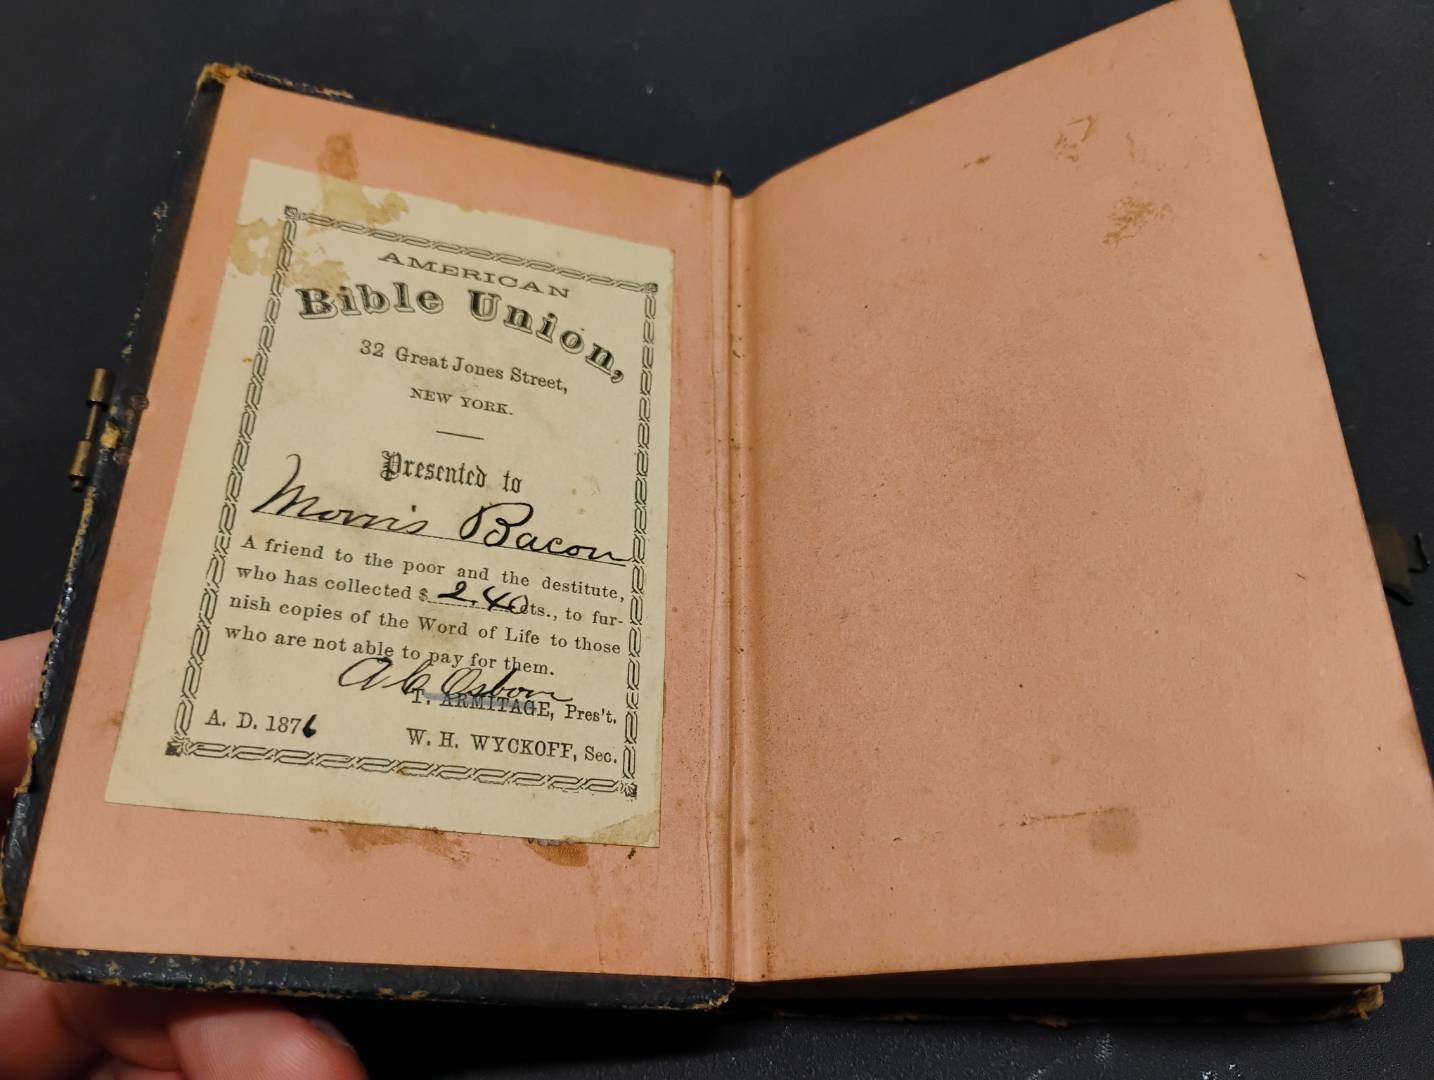 AMERICAN
Bible Union,
32 Great Jones Street,
NEW YORK.
Presented to
Morris Bacon
A friend to the poor and the destitute,
who has collected $ 2.40 cts., to fur-
nish copies of the Word of Life to those
who are not able to pay for them.
A C Osborn
T. ARMITAGE, Pres't.
A. D. 1876
W. H. WYCKOFF, Sec.